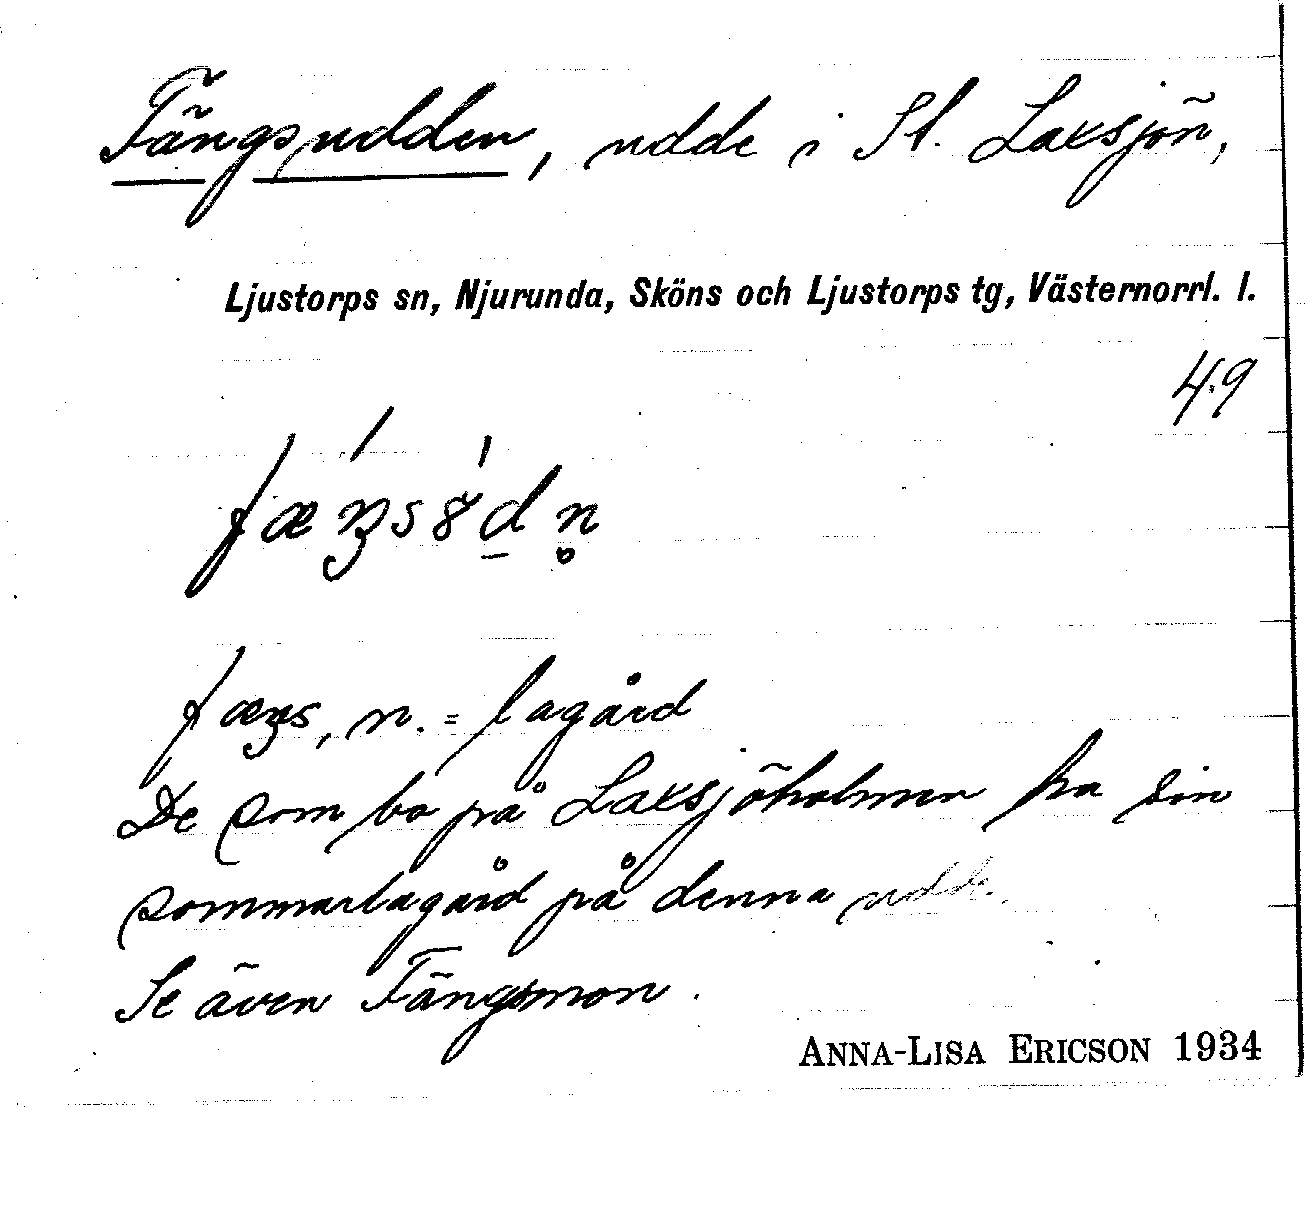 Fängsudden, udde i St. Laxsjön,
Ljustorps sn, Njurunda, Sköns och Ljustorps tg, Västernorrl. l.
49
fæŋsȣdn̥
fæŋs, n. = lagård
De som bo på Laxsjöholmen ha sin
sommarlagård på denna udde.
Se även Fängsmon.
ANNA-LISA ERICSON 1934